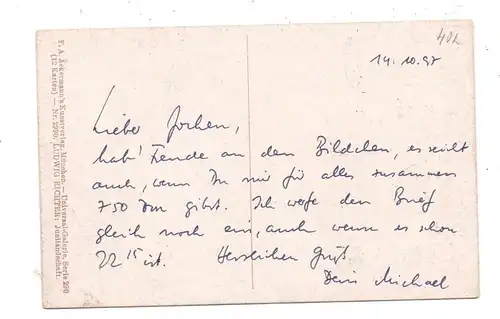 402
14.10.97
Lieber Jochen,
hab' Freude an den Bildchen, es reicht
auch, wenn Du mir für alles zusammen
750 DM gibst. Ich werfe den Brief
gleich noch ein, auch wenn es schon
22 15 ist. Herzlichen Gruß
Dein Michael
F. A. Ackermann's Kunstverlag, München. — Universal-Galerie, Serie 290
(12 Karten) — Nr. 2990: LUDWIG RICHTER: Junilandschaft.